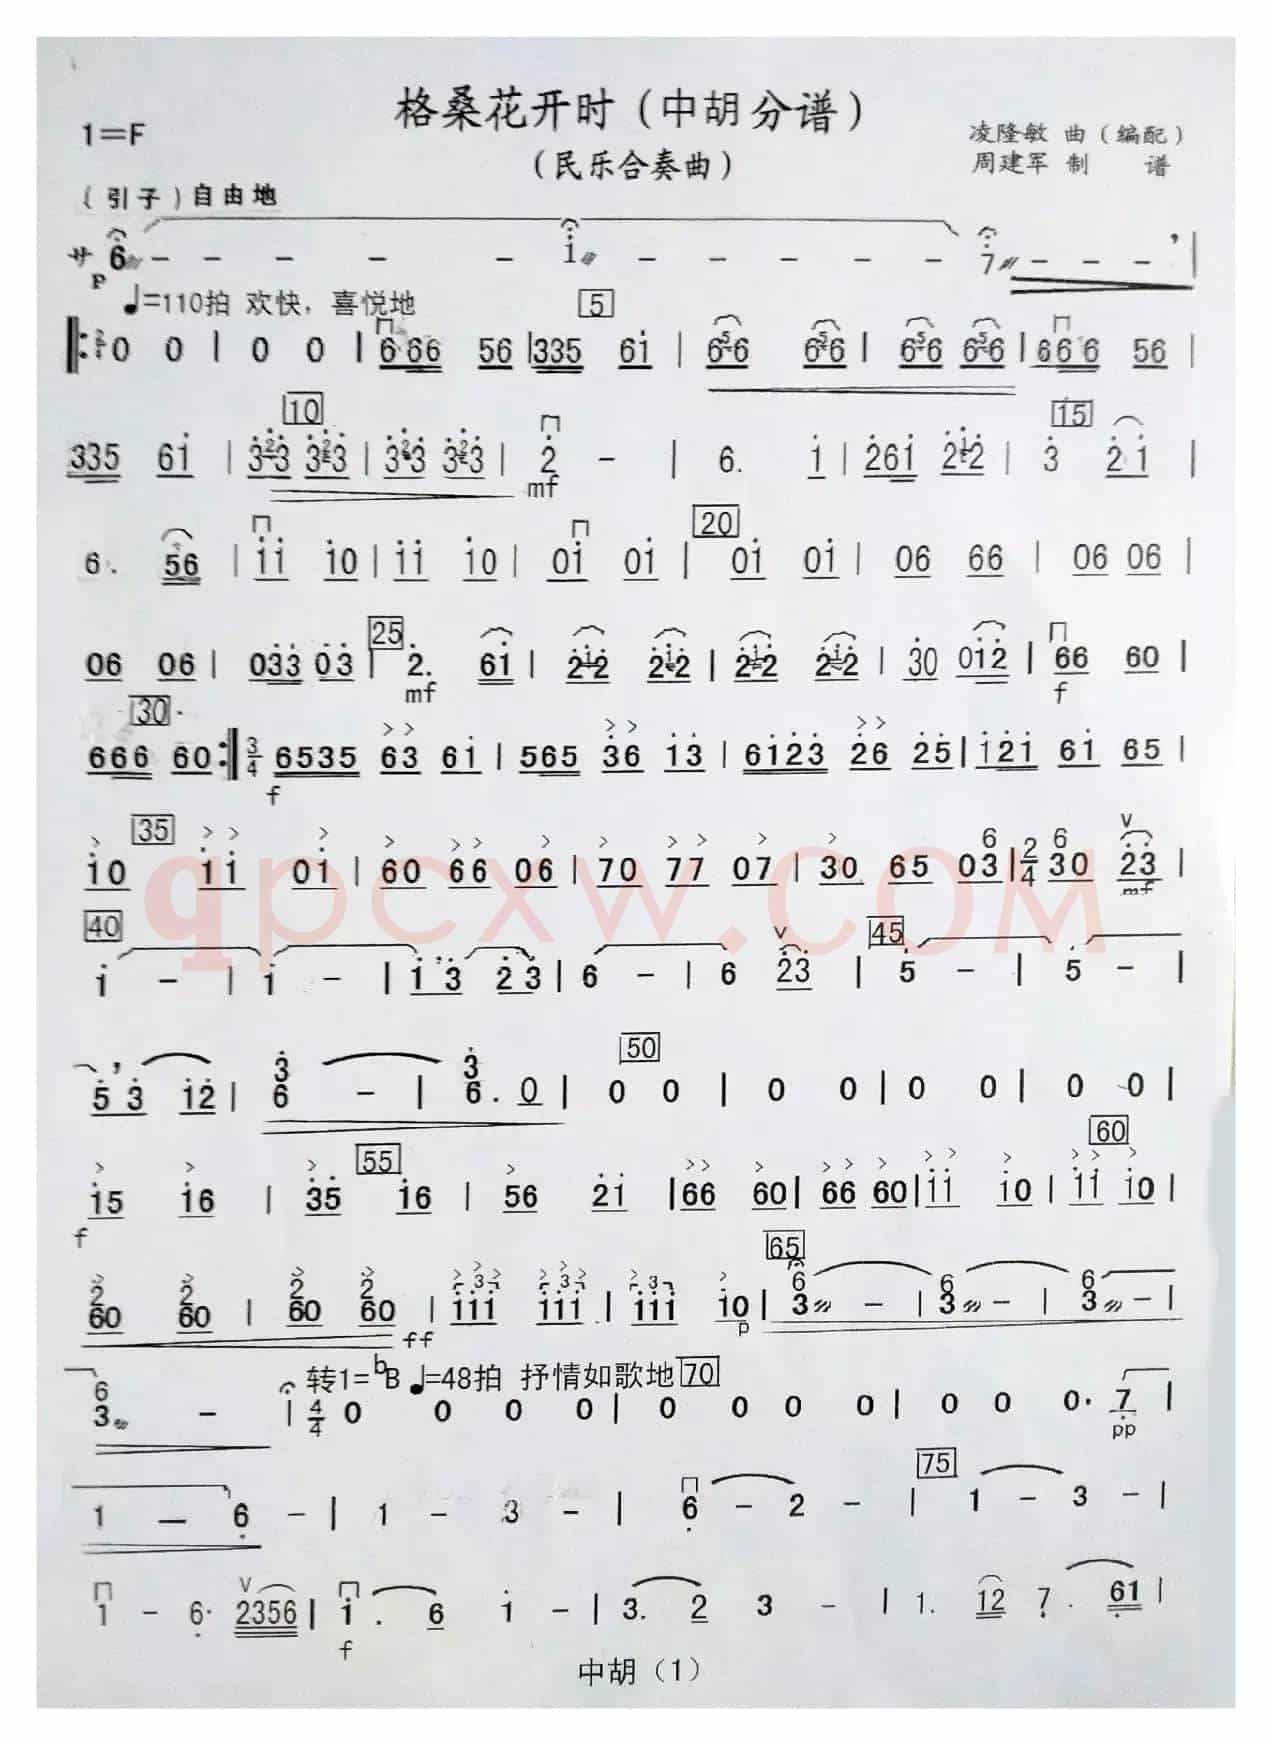 格桑花开时（中胡分谱）
1=F
（民乐合奏曲）
凌隆敏 曲（编配）
周建军 制 谱
（引子）自由地
サ 6 - - - - - i - - - - - 7 - - - ,
P
♩=110拍 欢快，喜悦地 5
2/4 0 0 | 0 0 | 666 56 | 335 61 | 656 656 | 656 656 | 666 56 |
10 15
335 61 | 323 323 | 323 323 | 2 - | 6. 1 | 261 212 | 3 21 |
mf
20
6. 56 | 11 10 | 11 10 | 01 01 | 01 01 | 06 66 | 06 06 |
25
06 06 | 033 03 | 2. 61 | 212 212 | 212 212 | 30 012 | 66 60 |
mf f
30
666 60 :| 3/4 6535 63 61 | 565 36 13 | 6123 26 25 | 121 61 65 |
f
35
10 11 01 | 60 66 06 | 70 77 07 | 30 65 03 | 2/4 30 23 |
6 6
mf
qpcxw.com
40 45
1 - | 1 - | 13 23 | 6 - | 6 23 | 5 - | 5 - |
50
53 12 | 3 - | 3
6 6. 0 | 0 0 | 0 0 | 0 0 | 0 0 |
55 60
15 16 | 35 16 | 56 21 | 66 60 | 66 60 | 11 10 | 11 10 |
f
65
2 2 2 2 3 3 3 6 6 6
60 60 | 60 60 | 111 111 | 111 10 | 3 - | 3 - | 3 - |
ff p
转1=bB ♩=48拍 抒情如歌地 70
6
3 - | 4/4 0 0 0 0 | 0 0 0 0 | 0 0 0. 7 |
pp
75
1 - 6 - | 1 - 3 - | 6 - 2 - | 1 - 3 - |
1 - 6. 2356 | 1. 6 1 - | 3. 2 3 - | 1. 12 7. 61 |
f
中胡（1）